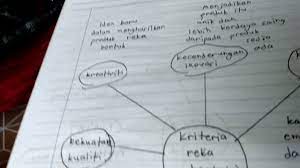 idea baru
dalam menghasilkan
produk reka
bentuk
menjadikan
produk itu
unik dan
lebih berdaya saing
daripada produk
sedia
ada
kreativiti
kecenderungan
inovasi
kekuatan
kualiti
kriteria
reka